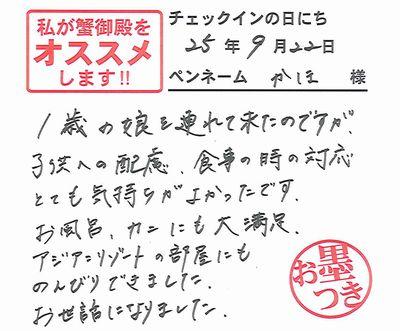 私が蟹御殿を
オススメ
します!!
チェックインの日にち
25年9月22日
ペンネーム かほ 様
1歳の娘を連れて来たのですが、
子供への配慮、食事の時の対応
とても気持ちがよかったです。
お風呂、カニにも大満足。
アジアンリゾートの部屋にも
のんびりできました。
お世話になりました。
お墨つき